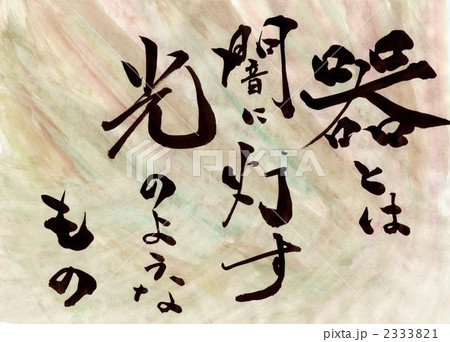 器とは
闇に灯す
光のような
もの
PIXTA
pixta.jp - 2333821